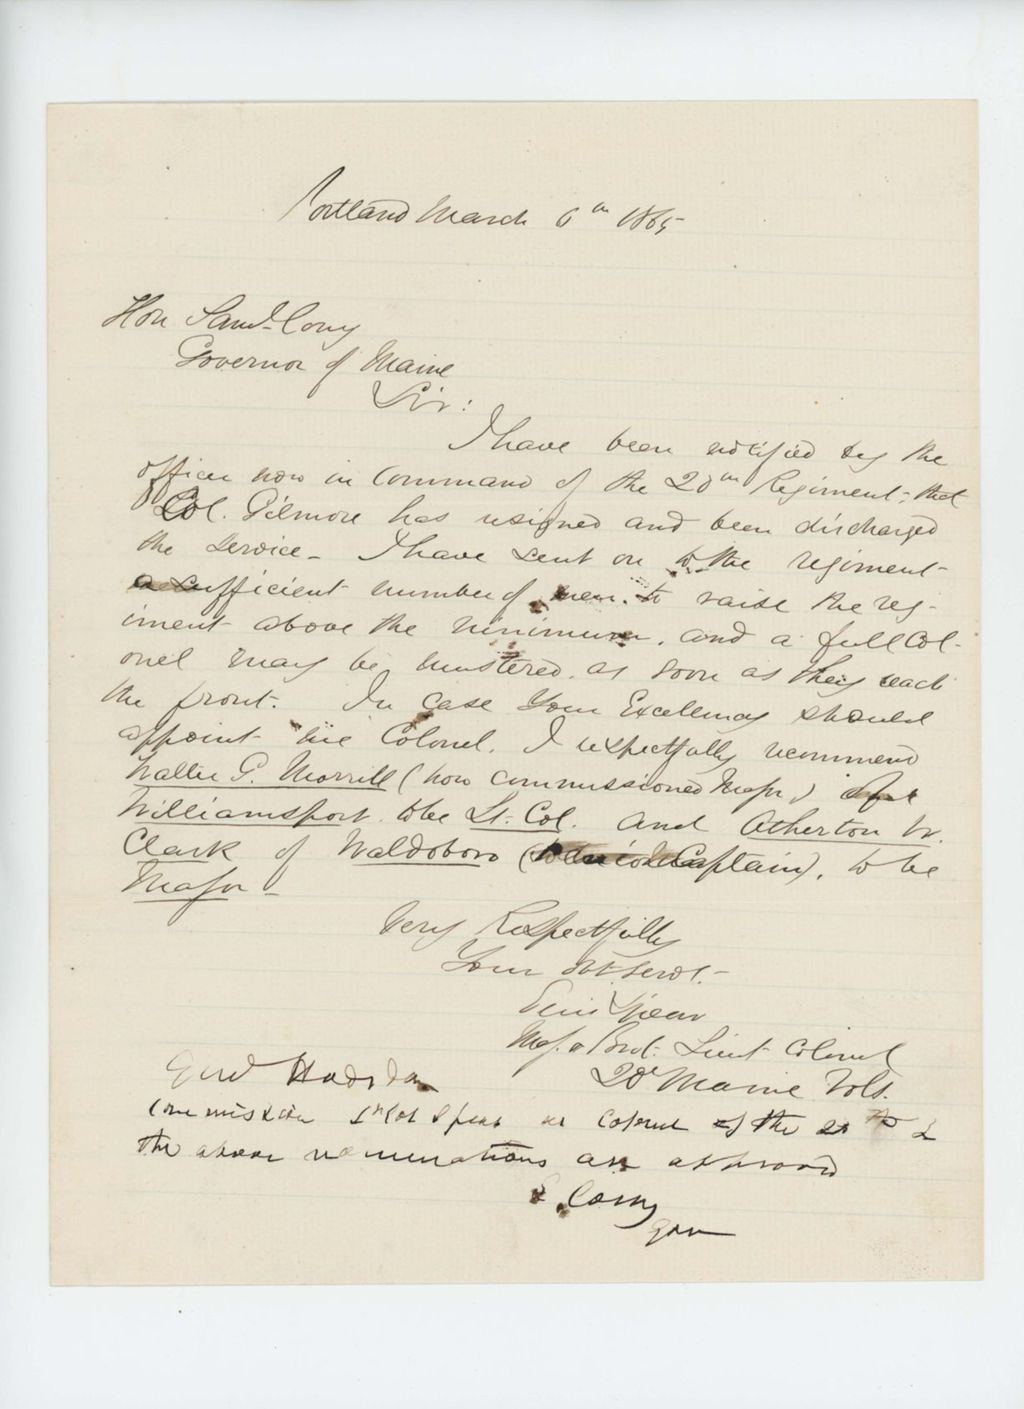 Portland March 6th 1865
Hon Saml Cony
Governor of Maine
Sir:
I have been notified by the
officer now in command of the 20th Regiment, that
Col. Gilmore has resigned and been discharged
the service - I have sent on to the regiment
a sufficient number of men to raise the reg-
iment above the minimum, and a full Col-
onel may be mustered as soon as they reach
the front. In case Your Excellency should
appoint me Colonel, I respectfully recommend
Walter G. Morrill (now commissioned Major) of
Williamsport to be Lt. Col. and Atherton W.
Clark of Waldoboro (Captain), to be
Major -
Very Respectfully
Your Obt. Servt. -
Ellis Spear
Maj. & Bvt. Lieut Colonel
20" Maine Vols.
Genl Hodsdon
Commission Lt Col Spear as Colonel of the 20th &
the above nominations are approved
S. Cony
Gov